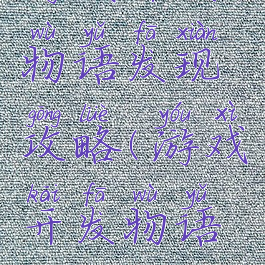 wù yǔ fā xiàn
物语发现
gōng lüè yóu xì
攻略(游戏
kāi fā wù yǔ
开发物语